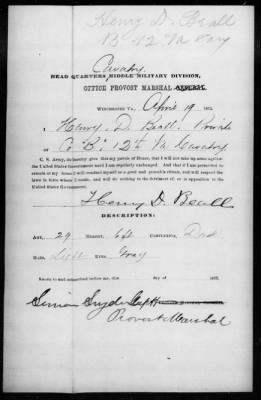 Henry D. Beall
B - 12 Va Cav
Cavalry
HEAD QUARTERS MIDDLE MILITARY DIVISION,
OFFICE PROVOST MARSHAL GENERAL.
WINCHESTER VA., April 19 1865.
I Henry D. Beall, Private
Co. B. 12th Va Cavalry
C. S. Army, do hereby give this my parole of Honor, that I will not take up arms against
the United States Government until I am regularly exchanged. And that if I am permitted to
remain at my home I will conduct myself as a good and peaceable citizen, and will respect the
laws in force where I reside, and will do nothing to the detriment of, or in opposition to the
United States Government.
Henry D. Beall
DESCRIPTION:
AGE, 29 HEIGHT, 6ft COMPLEXION,
HAIR, Light EYES Gray
Sworn to and subscribed before me, this day of 1865.
Simon Snyder Capt
Provost Marshal